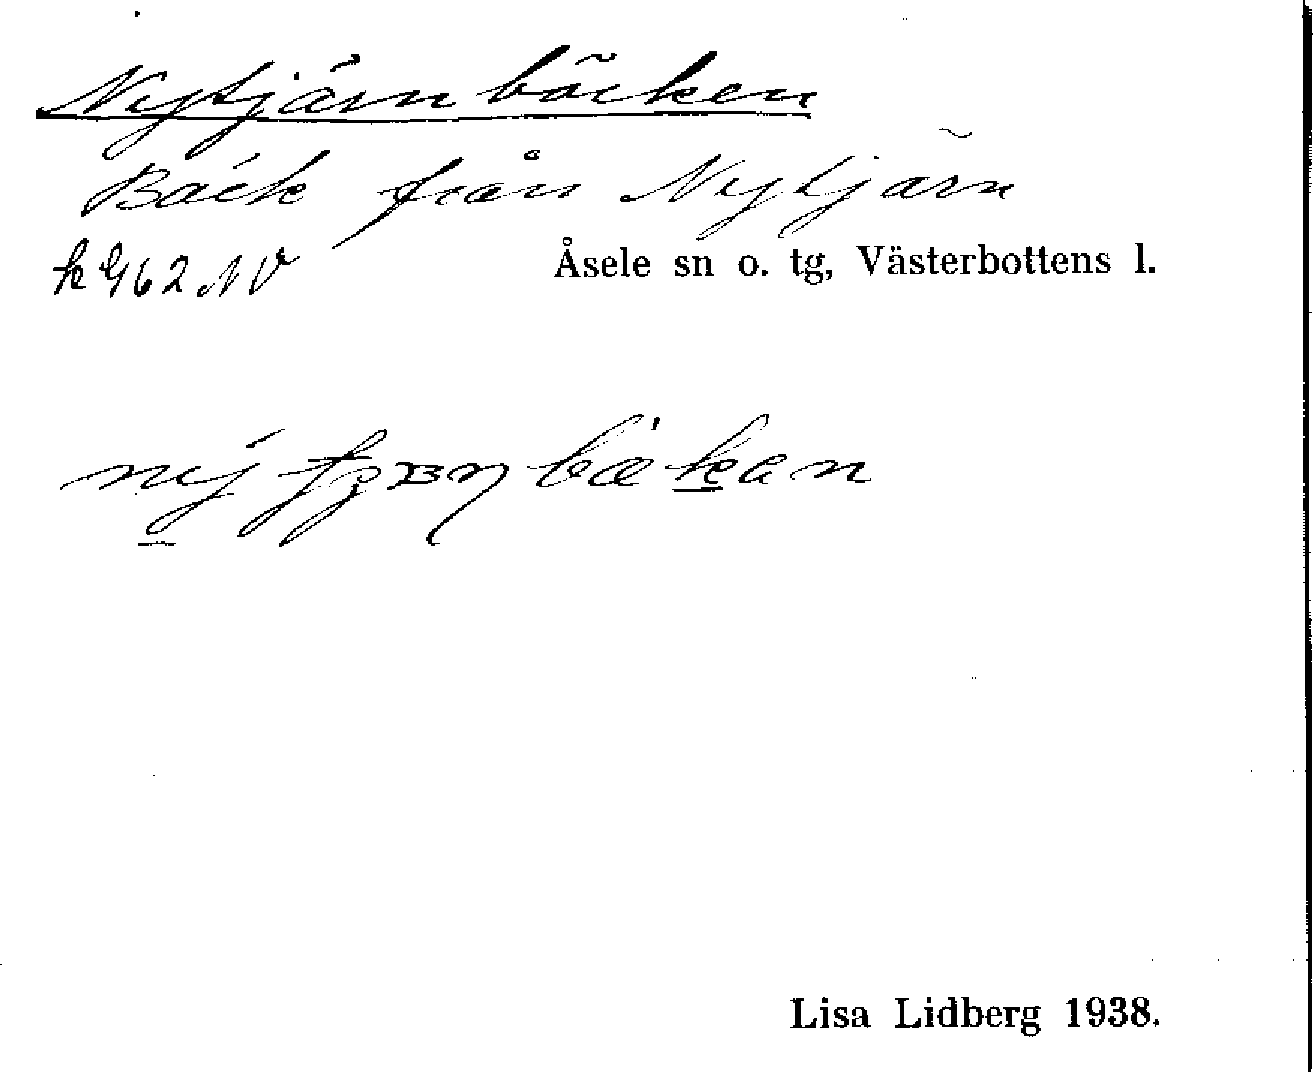 Nytjärnbäcken
Bäck från Nytjärn
k G62 NV
Åsele sn o. tg, Västerbottens l.
Lisa Lidberg 1938.